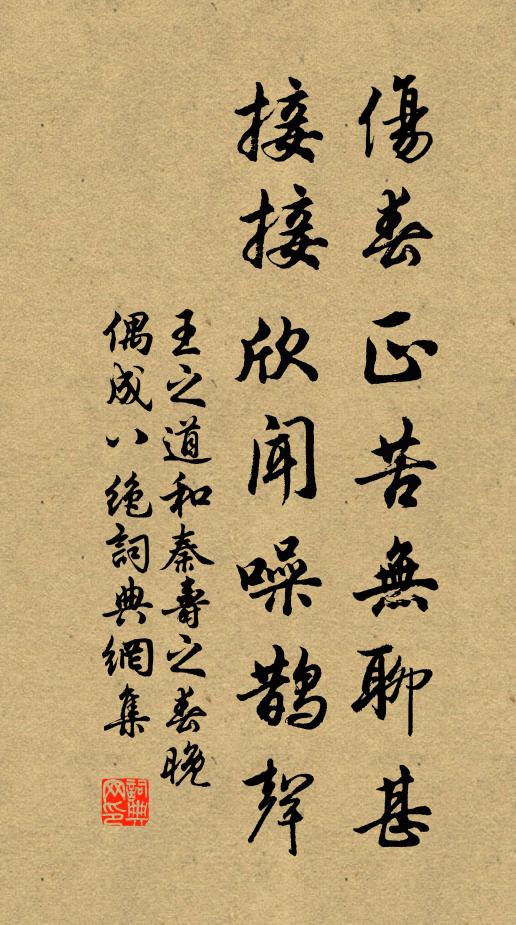 傷春正苦無聊甚
接接欣聞噪鵲聲
王之道和秦壽之春晚
偶成八絕詞典網集
詞典
网印